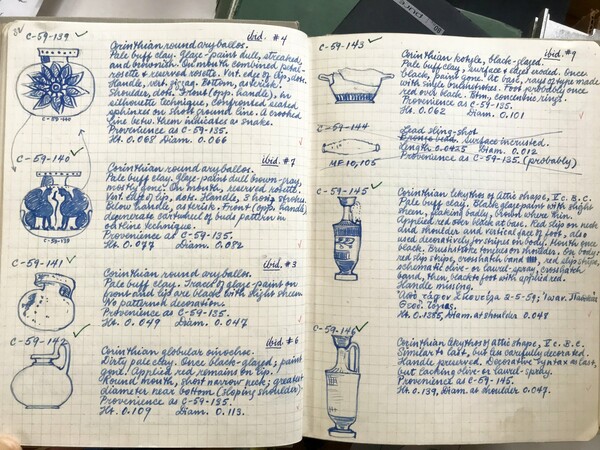 82
C-59-139 ✓
ibid. #4
Corinthian round aryballos.
Pale buff clay. Glaze-paint dull, streaked,
and brownish. On mouth combined petal-
rosette & reserved rosette. Vert. edge of lip, dots.
Handle, vert. zigzag. Bottom, asterisk.
Shoulder, dots. Front (opp. handle), in
silhouette technique, confronted seated
sphinxes on short ground line. A crooked
line betw. them indicates a snake.
Provenience as C-59-135.
Ht. 0.068 Diam. 0.066
C-59-140
C-59-140 ✓
ibid. #7
Corinthian round aryballos.
Pale buff clay. Glaze-paint dull brown-gray,
mostly gone. On mouth, reserved rosette.
Vert. edge of lip, dots. Handle, 3 horiz. strokes.
Below handle, asterisk. Front (opp. handle)
degenerate cartwheel of buds pattern in
outline technique.
Provenience as C-59-135.
Ht. 0.077 Diam. 0.082
C-59-139
C-59-141 ✓
ibid. #3
Corinthian round aryballos.
Pale buff clay. Traces of glaze-paint on
front and lip are black with slight sheen.
No patterned decoration.
Provenience as C-59-135.
Ht. 0.049 Diam. 0.047
C-59-142 ✓
ibid. #6
Corinthian globular oinochoe.
Dirty pale clay. Once black-glazed; paint
gone. Applied red remains on lip.
Round mouth, short narrow neck; greatest
diameter near bottom (sloping shoulder).
Provenience as C-59-135.
Ht. 0.109 Diam. 0.113.
C-59-143 ✓
ibid. #9
Corinthian kotyle, black-glazed.
Pale buff clay, surface & edges eroded. Once
black, paint gone. At base, rays of type made
with single brushstrokes. Foot probably once
red over black. Thin, concentric rings.
Provenience as C-59-135.
Ht. 0.062 Diam. 0.101
C-59-144
Lead sling-shot
Bronze bead. Surface incrusted.
Length 0.0425 Diam. 0.012
Provenience as C-59-135 (probably)
MF 10,105
C-59-145 ✓
Corinthian lekythos of Attic shape, V c. B.C.
Pale buff clay. Black glaze-paint with slight
sheen, flaking badly, brown where thin.
Applied red also later at base. Red slip on neck
and shoulder and vertical face of foot, also
used decoratively for stripes on body. Mouth once
black. Brushstroke tongues on shoulder. On body:
red slip stripes, crosshatch band, red slip stripe,
schematic olive- or laurel-spray, crosshatch
band, then black to foot with applied red.
Handle missing.
Ht. 0.1385, Diam. at shoulder 0.048
C-59-146 ✓
Corinthian lekythos of Attic shape, V c. B.C.
Similar to last, but less carefully decorated.
Handle preserved. Decorative syntax as last,
but lacking olive- or laurel-spray.
Provenience as C-59-145.
Ht. 0.139, Diam. at shoulder 0.047.